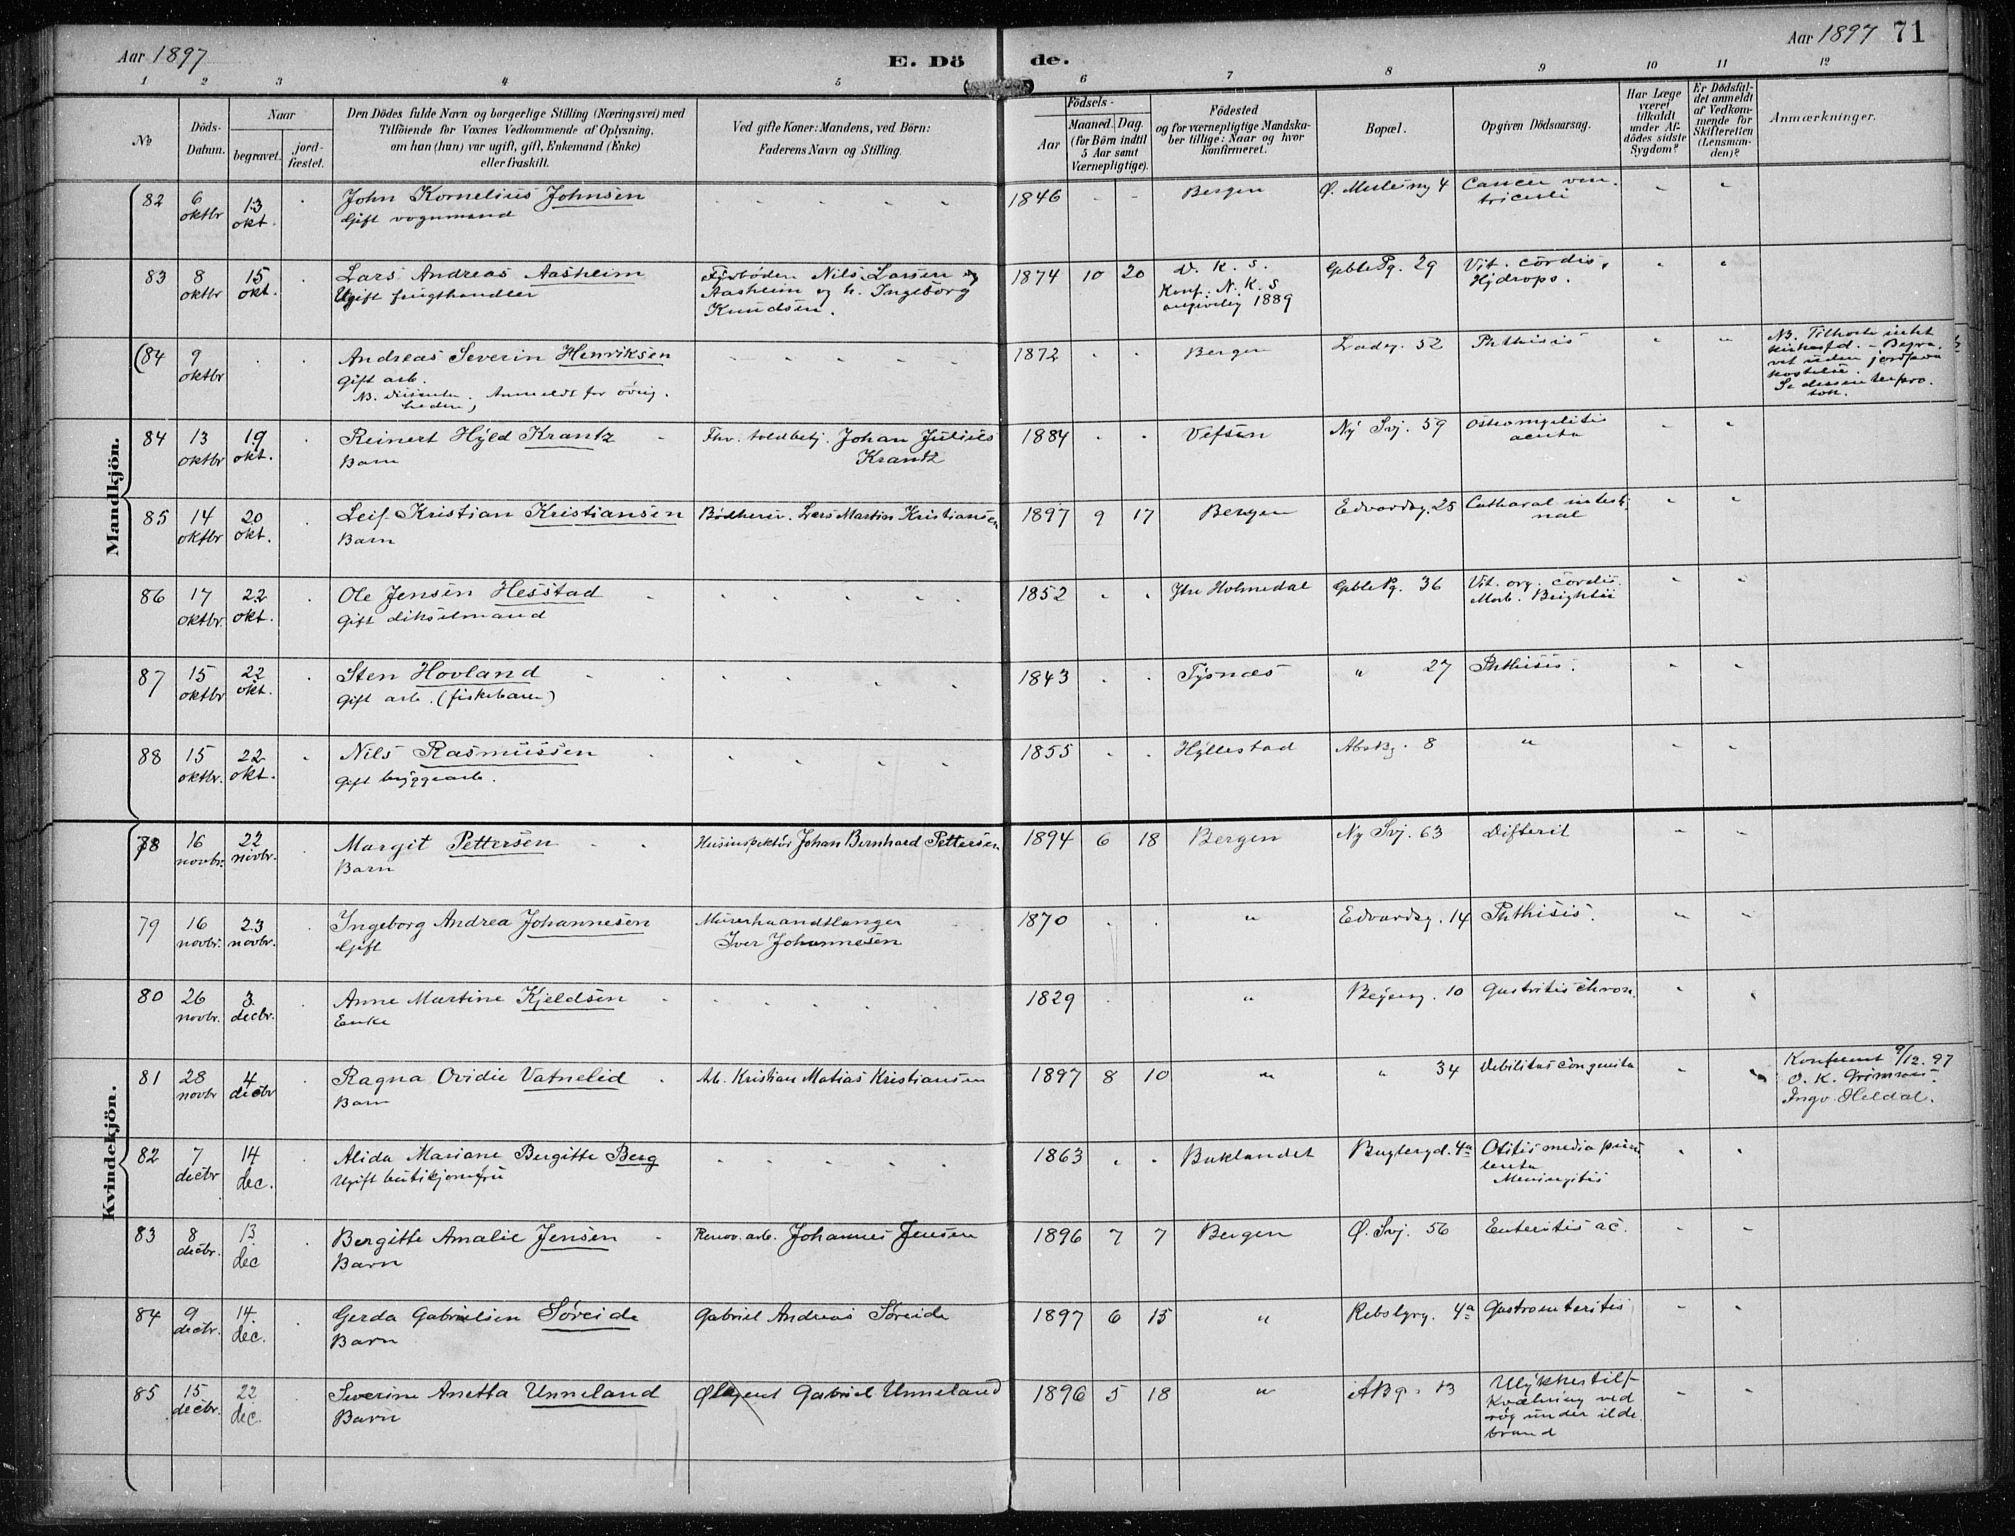 Aar 1897
E. Dö de.
Aar 1897 71
1 2 3 4 5 6 7 8 9 10 11 12
No
Döds-Datum.
Naar
begravet.
jord-fæstet.
Den Dödes fulde Navn og borgerlige Stilling (Næringsvei) med
Tilföiende for Voxnes Vedkommende af Oplysning,
om han (hun) var ugift, gift, Enkemand (Enke)
eller fraskilt.
Ved gifte Koner: Mandens, ved Börn:
Faderens Navn og Stilling.
Födsels-
Aar
Maaned. Dag.
(for Börn indtil
5 Aar samt
Værnepligtige).
Födested
og for værnepligtige Mandska-
ber tillige: Naar og hvor
konfirmeret.
Bopæl.
Opgiven Dödsaarsag.
Har Læge
været
tilkaldt
under Af-
dödes sidste
Sygdom?
Er Dödsfal-
det anmeldt
af Vedkom-
mende for
Skifteretten
(Lensman-
den)?
Anmærkninger.
Mandkjön.
82 6 oktbr 13 okt. John Kornelius Johnsen 1846 Bergen Ø. 4 Cancer ven-
Gift vognmand triculi
83 8 oktbr 15 okt. Lars Andreas Aasheim Nils Larsen 1874 10 20 D. K. S. 29 Vit. cordis,
Ugift frugthandler Aasheim og h. Ingeborg Konf. N. K. S Hydrops.
Knudsen. angivelig 1889
(84 9 oktbr Andreas Severin Henriksen 1872 Bergen Ladeg. 52 Phthisis NB. Tilhørte intet
Gift arb.
NB. Anmeldt for øvrig-
heden)
84 13 oktbr 19 okt. Reinert Hyld Krantz Fhv. toldbetj. Johan Julius 1884 Vefsen Ny Svj. 59 Osteomyelitis
Barn Krantz acuta
85 14 oktbr 20 okt. Leif Kristian Kristiansen Lars Martin Kristiansen 1897 9 17 Bergen Edvardsg. 25 Catharal intesti-
Barn nal
86 17 oktbr. 22 okt. Ole Jensen Hesstad 1852 Ytre Holmedal 36 Vit. org. cordis.
Gift dikselmand Morb. Brightii
87 15 oktbr 22 okt. Sten Hovland 1843 Tysnæs " 27 Phthisis.
Gift arb. (fiskebaren)
88 15 oktbr. 22 okt. Nils Rasmussen 1855 Hyllestad 8 "
Gift bryggearb.
Kvindekjön.
78 16 novbr. 22 novbr. Margit Pettersen Husinspektør Johan Bernhard Pettersen 1894 6 18 Bergen Ny Svj. 63 Difterit
Barn
79 16 novbr. 23 novbr. Ingeborg Andrea Johannesen Murerhaandtlanger 1870 " Edvardsg. 14 Phthisis.
Gift Iver Johannesen
80 26 novbr. 3 decbr. Anne Martine Kjeldsen 1829 " 10 Gastritis chron.
Enke
81 28 novbr 4 decbr Ragna Ovidie Vatnelid Arb. Kristian Matias Kristiansen 1897 8 10 " " 34 Debilitas congenita 9/12. 97
Barn Ingv. Heldal.
82 7 decbr 14 dec. Alida Mariane Bergitte Berg 1863 Buklandet 4a Otitis media puru-
Ugift butikjomfru lenta
Meningitis
83 8 decbr. 13 dec Bergitte Amalie Jensen Renov. arb. Johannes Jensen 1896 7 7 Bergen Ø. Svj. 56 Enteritis ac.
Barn
84 9 decbr. 14. dec. Gerda Gabrielsen Søreide Gabriel Andreas Søreide 1897 6 15 " 4a Gastroenteritis
Barn
85 15 decbr. 22 dec. Severine Anetta Unneland Gabriel Unneland 1896 5 18 " 13 Ulykkestilf.
Barn Kvælning ved
røg under ilde-
brand